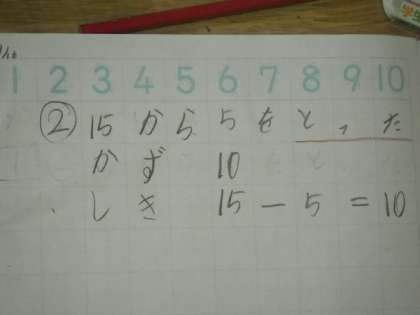 1 2 3 4 5 6 7 8 9 10
② 15から5をとった
かず 10
しき 15－5＝10